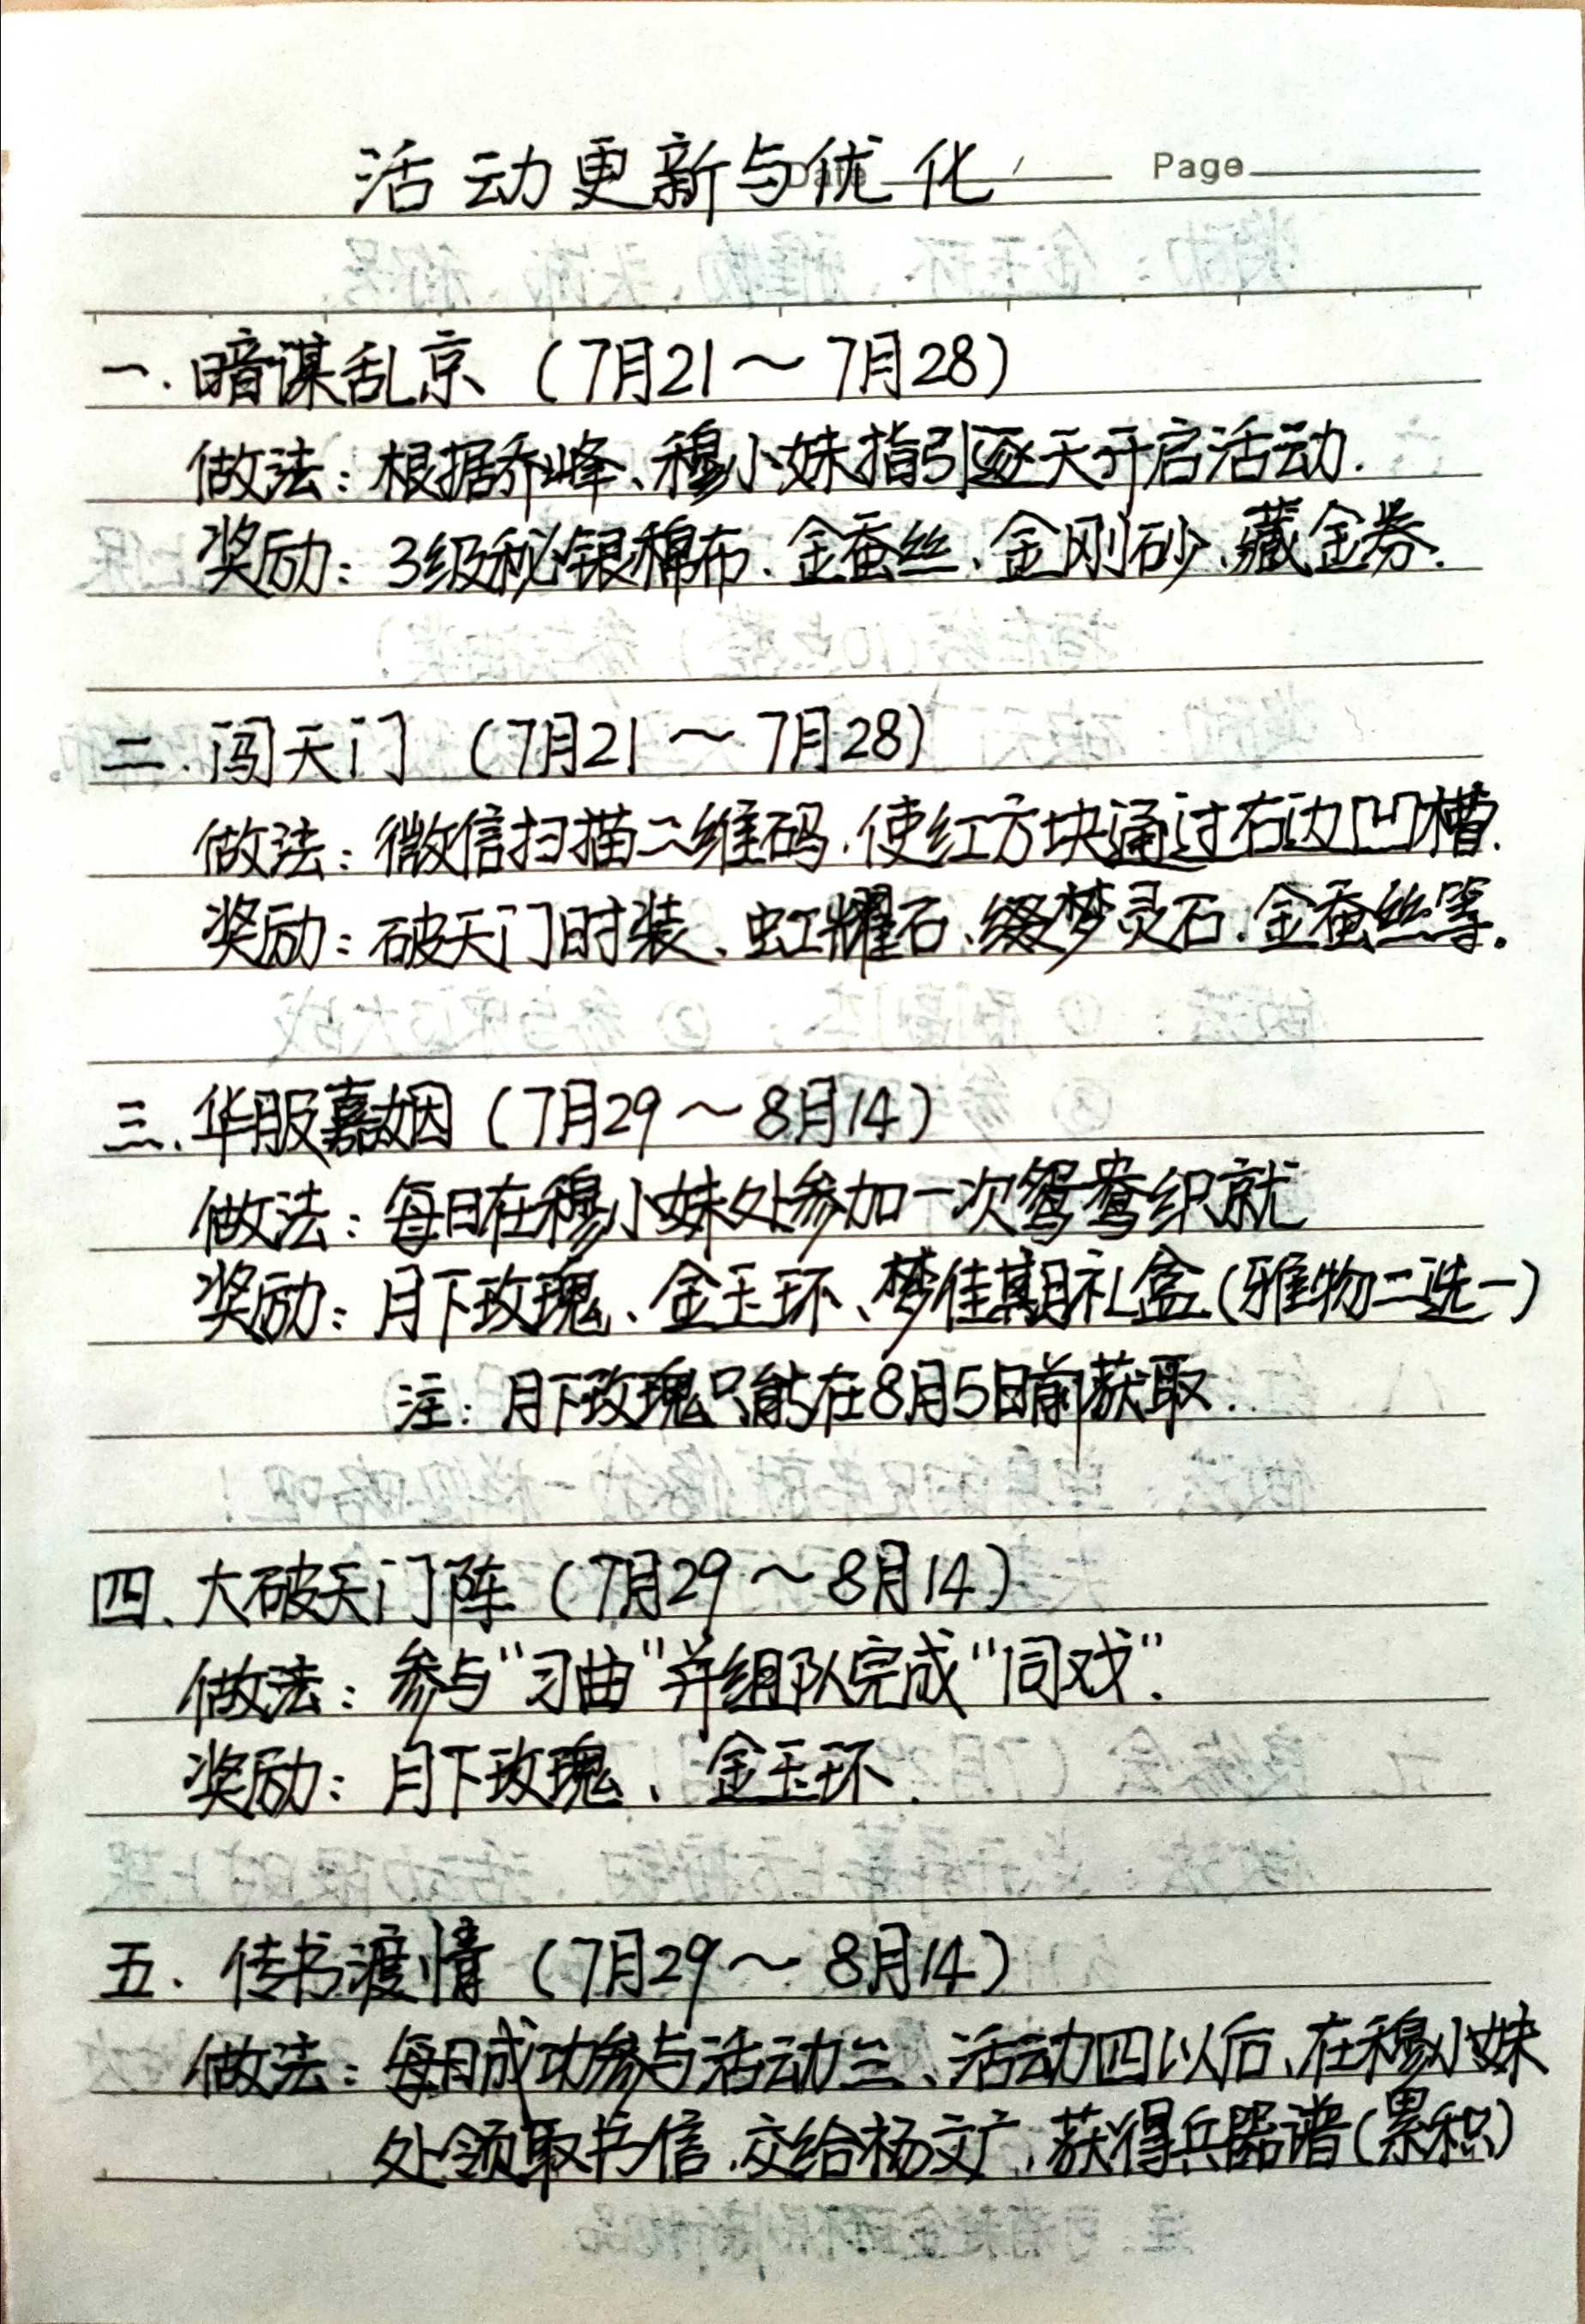 活动更新与优化 Page
一. 暗谋乱京 (7月21～7月28)
做法：根据乔峰、穆小妹指引逐天开启活动.
奖励：3级秘银棉布、金蚕丝、金刚砂、藏金券.
二. 闯天门 (7月21～7月28)
做法：微信扫描二维码，使红方块通过右边凹槽.
奖励：破天门时装、虹耀石、缀梦灵石、金蚕丝等.
三、华服嘉姻 (7月29～8月14)
做法：每日在穆小妹处参加一次鸳鸯织就
奖励：月下玫瑰、金玉环、梦佳期礼盒(雅物二选一)
注：月下玫瑰只能在8月5日前获取.
四、大破天门阵 (7月29～8月14)
做法：参与"习曲"并组队完成"同戏".
奖励：月下玫瑰、金玉环.
五. 传书渡情 (7月29～8月14)
做法：每日成功参与活动三、活动四以后、在穆小妹
处领取书信，交给杨文广，获得兵器谱(累积)